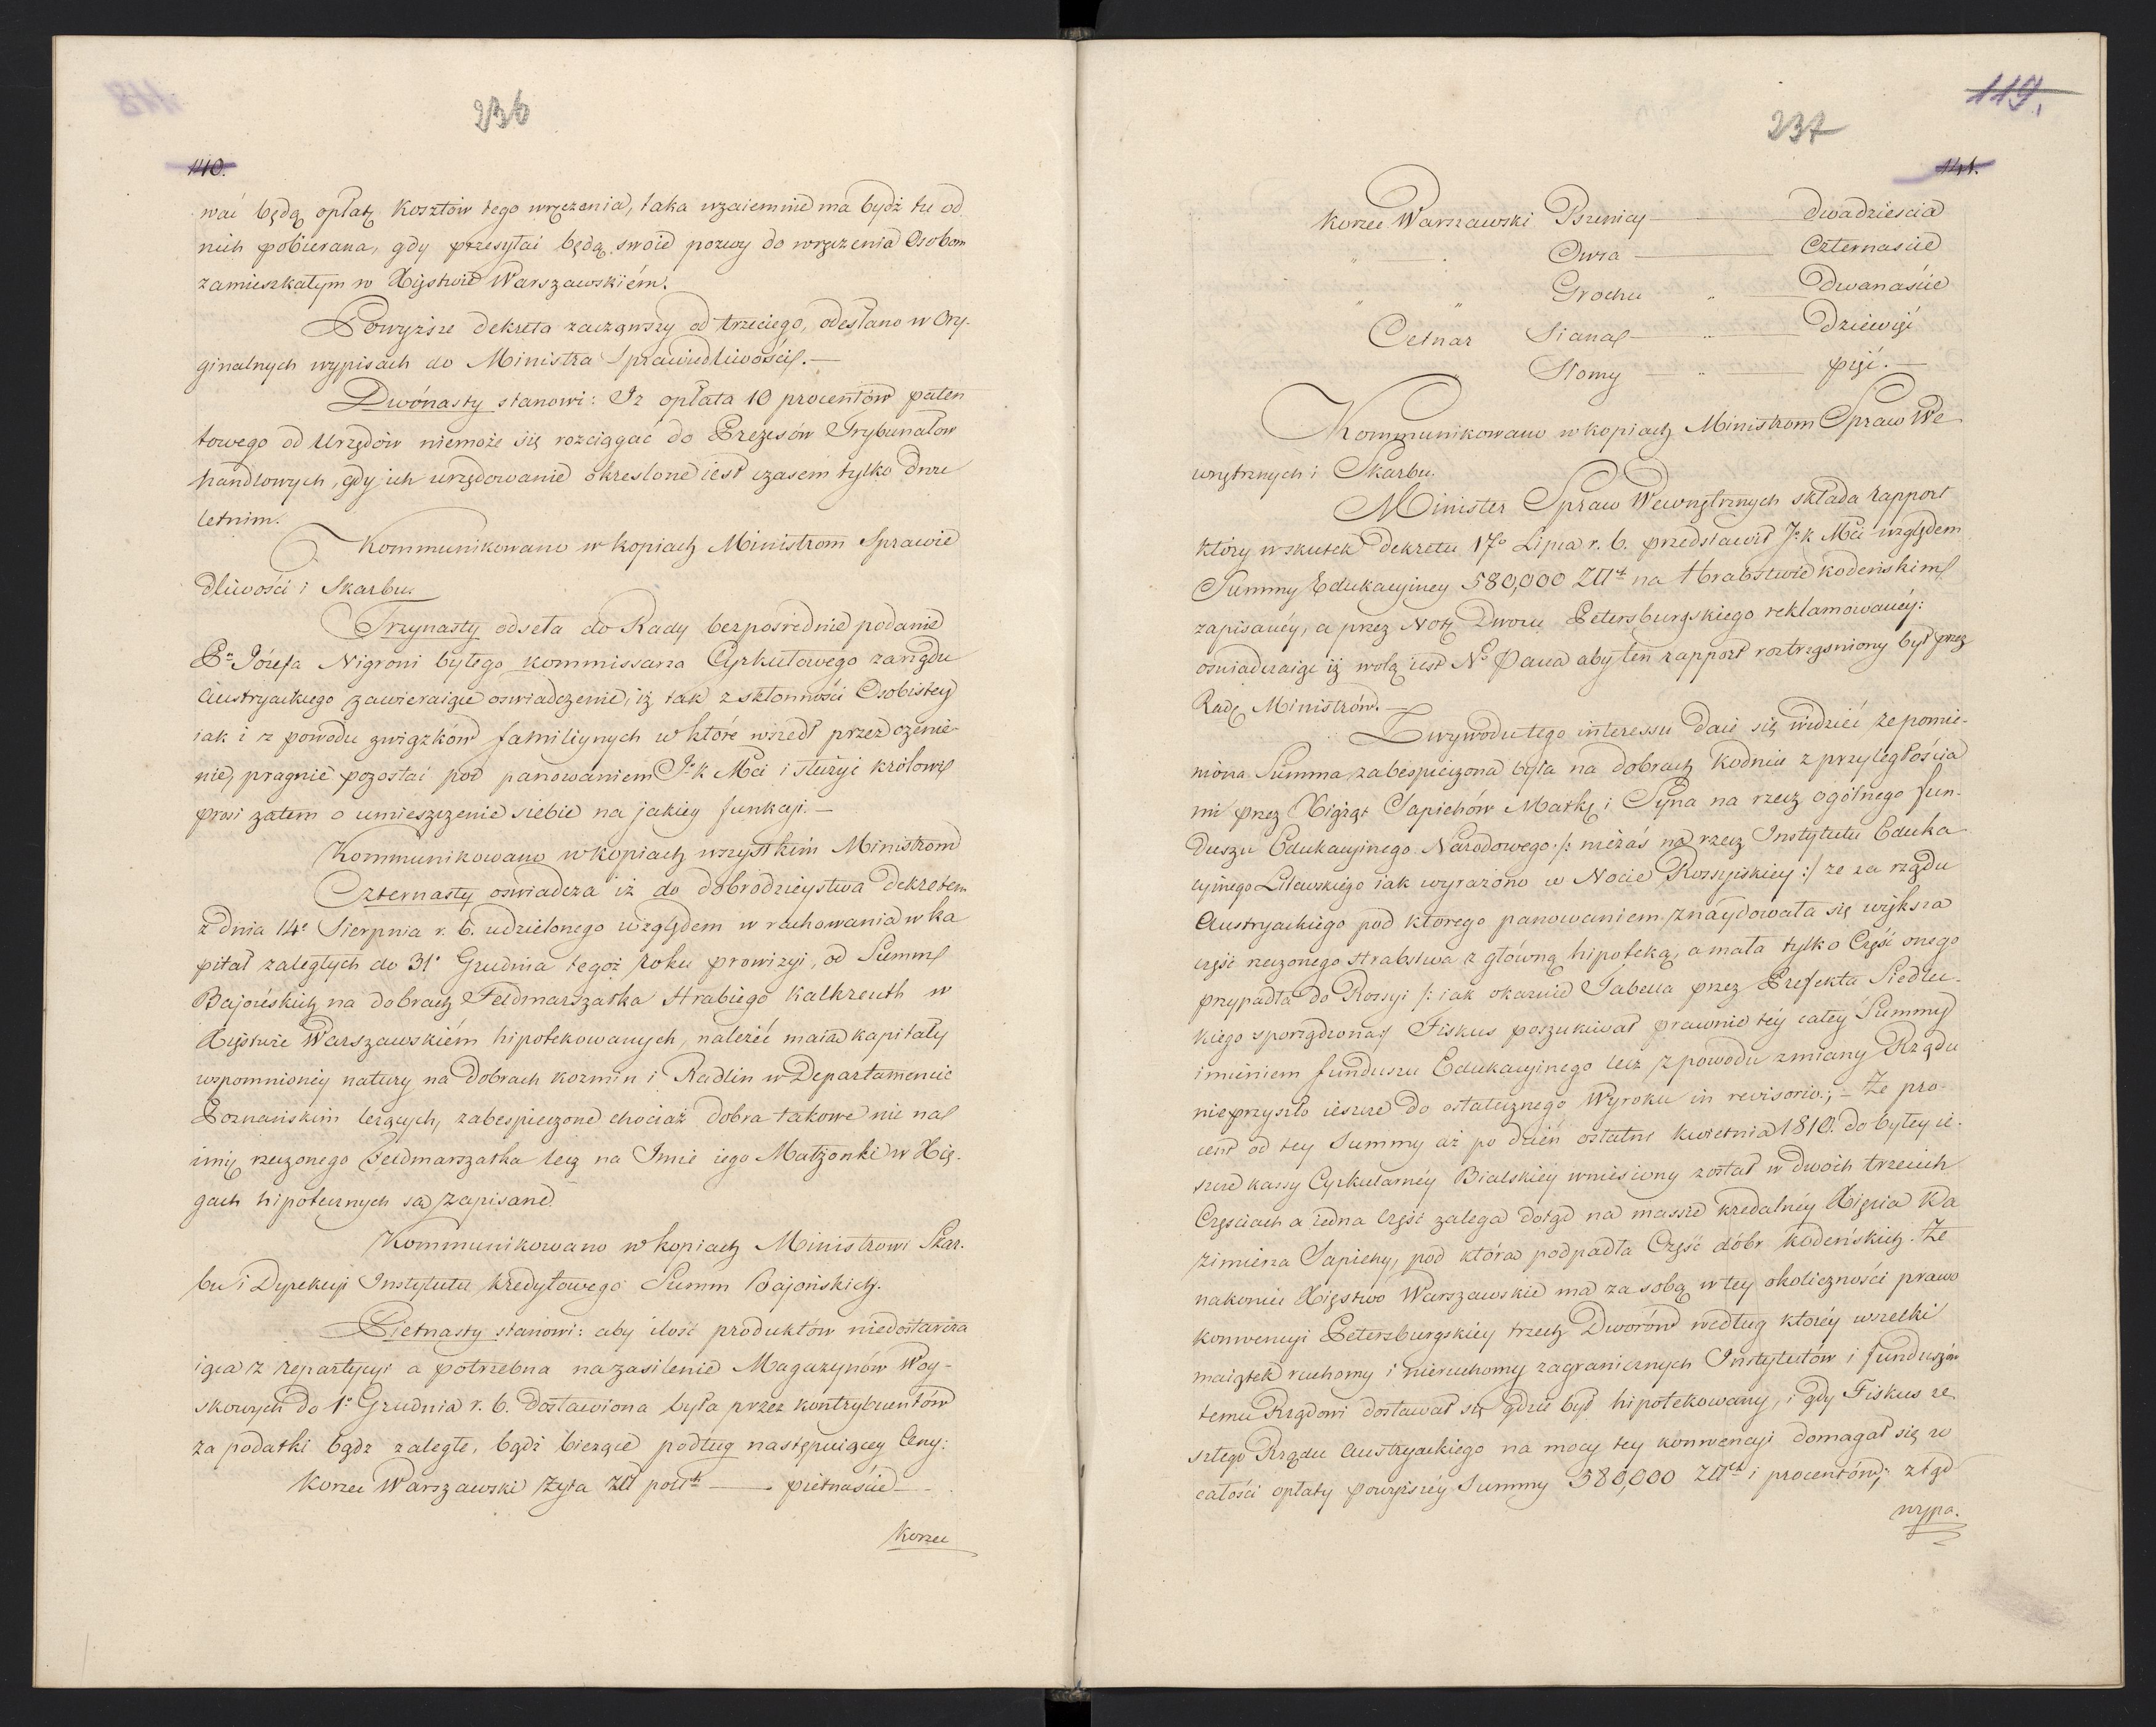 236
140.
wać będą opłatę kosztów tego wręczenia, taka wzaiemnie ma bydź tu od
nich pobierana, gdy przesyłać będą swoie pozwy do wręczenia Osobom
zamieszkałym w Xięstwie Warszawskiém.
Powyższe dekreta zacząwszy od trzeciego, odesłano w Ory-
ginalnych wypisach do Ministra Sprawiedliwości.—
Dwónasty stanowi: Iż opłata 10 procentów paten
towego od Urzędów niemoże się rozciągać do Prezesów Trybunałow
handlowych, gdy ich urzędowanie okreslone iest czasem tylko dwu
letnim.
Kommunikowano w kopiach Ministrom Sprawie
dliwości i Skarbu.
Trzynasty odseła do Rady bezpośrednie podanie
Pa Józefa Nigroni byłego kommissarza Cyrkułowego za rządu
Austryackiego zawieraiące oswiadczenie, iż tak z skłonności Osobistey
iak i z powodu związków familiynych w które wszedł przez ożenie-
nie, pragnie pozostać pod panowaniem Jk Mci i służyć królowi
prosi zatem o umieszczenie siebie na jakiey funkcyi.—
Kommunikowano w kopiach wszystkim Ministrom
Czternasty oswiadcza iż do dobrodzieystwa Dekretem
z dnia 14o Sierpnia r. b. udzielonego względem w rachowania w ka
pitał zaległych do 31o Grudnia tegoż roku prowizyi, od Summ
Bajońskich na dobrach Feldmarszałka Hrabiego Kalkreuth w
Xięstwie Warszawskiém hipotekowanych, należéć maią kapitały
wspomnionéy natury na dobrach kozmin i Radlin w Departamencie
Poznańskim leżących, zabespieczone chociaż dobra takowe nie na
imię rzeczonego Feldmarszałka lecz na Imie iego Małżonki w Xię-
gach hipotecznych są zapisane.
Kommunikowano w kopiach Ministrowi Skar-
bu i Dyrekcyi Instytutu kredytowego Summ Bajońskich.
Pietnasty stanowi: aby ilosć produktów niedostarcza
iąca z repartycyi a potrzebna na zasilenie Magazynów Woy-
skowych do 1o Grudnia r. b. dostawiona była przez kontrybuentów
za podatki bądz zaległe, bądź bieżące podług następuiącey Ceny:
Korzec Warszawski Żyta Złł pol — pietnascie—
Korzec
119.
237
141.
Korzec Warszawski Pszenicy — dwadziescia
" — Owsa — Czternascie
" " Grochu " — Dwanaście
Cetnar Siana — " — Dziewięć
" Słomy — " — pięć.—
Kommunikowano w kopiach Ministrom Spraw We
wnętrznych i Skarbu.
Minister Spraw Wewnętrznych składa rapport
który w skutek dekretu 17o Lipca r. b. przedstawił Jk Mci względem
Summy Edukacyiney 580,000 Złł na Hrabstwie kodeńskim
zapisanéy, a przez Notę Dworu Petersburgskiego reklamowanéy:
oswiadczaiąc iż wolą iest No Pana aby ten rapport roztrząsniony był przez
Radę Ministrów.—
Z wywodu tego interessu daie się widzieć że pomie-
niona Summa zabespieczona była na dobrach Kodnie z przyległościa
mi przez Xiążąt Sapiehów Matkę i Syna na rzecz ogólnego fun-
duszu Edukacyinego Narodowego /: nie zaś na rzecz Instytutu Eduka
cyinego Litewskiego iak wyrażono w Nocie Rossyiskiey :/ że za rządu
Austryackiego pod którego panowaniem znaydowała się większa
częsć rzeczonego Hrabstwa z główną hipoteką, a mała tylko Część onego
przypadła do Rossyi /: iak okazuie Tabella przez Prefekta Siedlec-
kiego sporządzona/ Fiskus poszukiwał prawnie téy całey Summy
imieniem funduszu Edukacyinego lecz z powodu zmiany Rządu
nieprzyszło ieszcze do ostatecznego Wyroku in revisorio;— Że pro-
cent od tey Summy aż po dzień ostatni kwietnia 1810. do byłey ie-
szcze kassy Cyrkularnéy Bialskiéy wniesiony został w dwóch trzecich
Częsciach a iedna część zalega dotąd na massie kredalnéy Xięcia Ka
zimierza Sapiehy, pod którą podpadła Część dóbr kodeńskich. Że
nakoniec Xięstwo Warszawskie ma za sobą w tey okoliczności prawo
konwencyi Petersburgskiey trzech Dworów według któréy wszelki
maiątek ruchomy i nieruchomy zagranicznych Instytutów i funduszów
temu Rządowi dostawał się gdzie był hipotekowany, i gdy Fiskus ze
szłego Rządu Austryackiego na mocy tey konwencyi domagał się w
całości opłaty powyższéy Summy 580,000 Złł i procentów; ztąd
wypa.